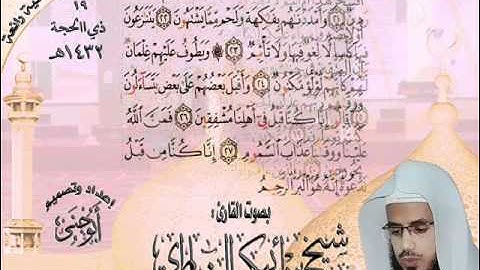 ١٩
ذي الحجة
١٤٣٢هـ
وَأَمْدَدْنَٰهُم بِفَٰكِهَةٍ وَلَحْمٍ مِّمَّا يَشْتَهُونَ ﴿٢٢﴾ يَتَنَٰزَعُونَ
فِيهَا كَأْسًا لَّا لَغْوٌ فِيهَا وَلَا تَأْثِيمٌ ﴿٢٣﴾ ۞ وَيَطُوفُ عَلَيْهِمْ غِلْمَانٌ
لَّهُمْ كَأَنَّهُمْ لُؤْلُؤٌ مَّكْنُونٌ ﴿٢٤﴾ وَأَقْبَلَ بَعْضُهُمْ عَلَىٰ بَعْضٍ يَتَسَآءَلُونَ
قَالُوٓا۟ إِنَّا كُنَّا قَبْلُ فِىٓ أَهْلِنَا مُشْفِقِينَ ﴿٢٦﴾ فَمَنَّ ٱللَّهُ
عَلَيْنَا وَوَقَىٰنَا عَذَابَ ٱلسَّمُومِ ﴿٢٧﴾ إِنَّا كُنَّا مِن قَبْلُ
نَدْعُوهُ إِنَّهُۥ هُوَ ٱلْبَرُّ ٱلرَّحِيمُ
إعداد وتصميم
أبو حنى
بصوت القارئ :